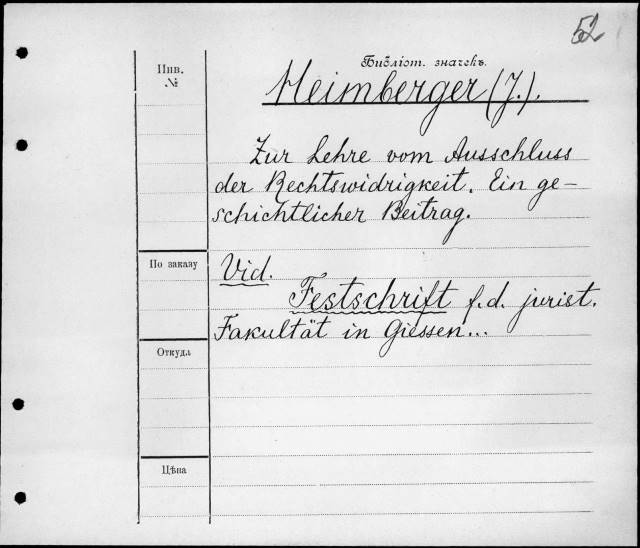 52
Инв.
№
Библіот. значекъ.
Heimberger (J.).
Zur Lehre vom Ausschluss
der Rechtswidrigkeit. Ein ge-
schichtlicher Beitrag.
По заказу
Vid.
Festschrift f. d. jurist.
Fakultät in Giessen...
Откуда
Цѣна